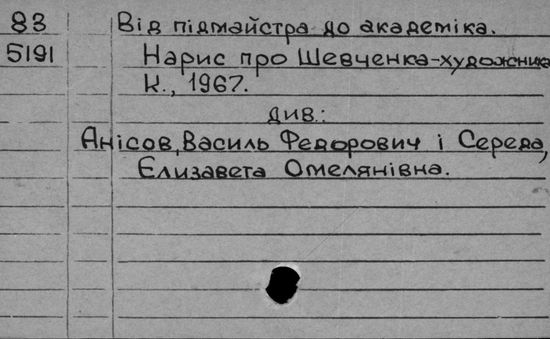 83 Від підмайстра до академіка.
5191 Нарис про Шевченка-художника
К., 1967.
див.:
Анісов, Василь Федорович і Середа,
Єлизавета Омелянівна.